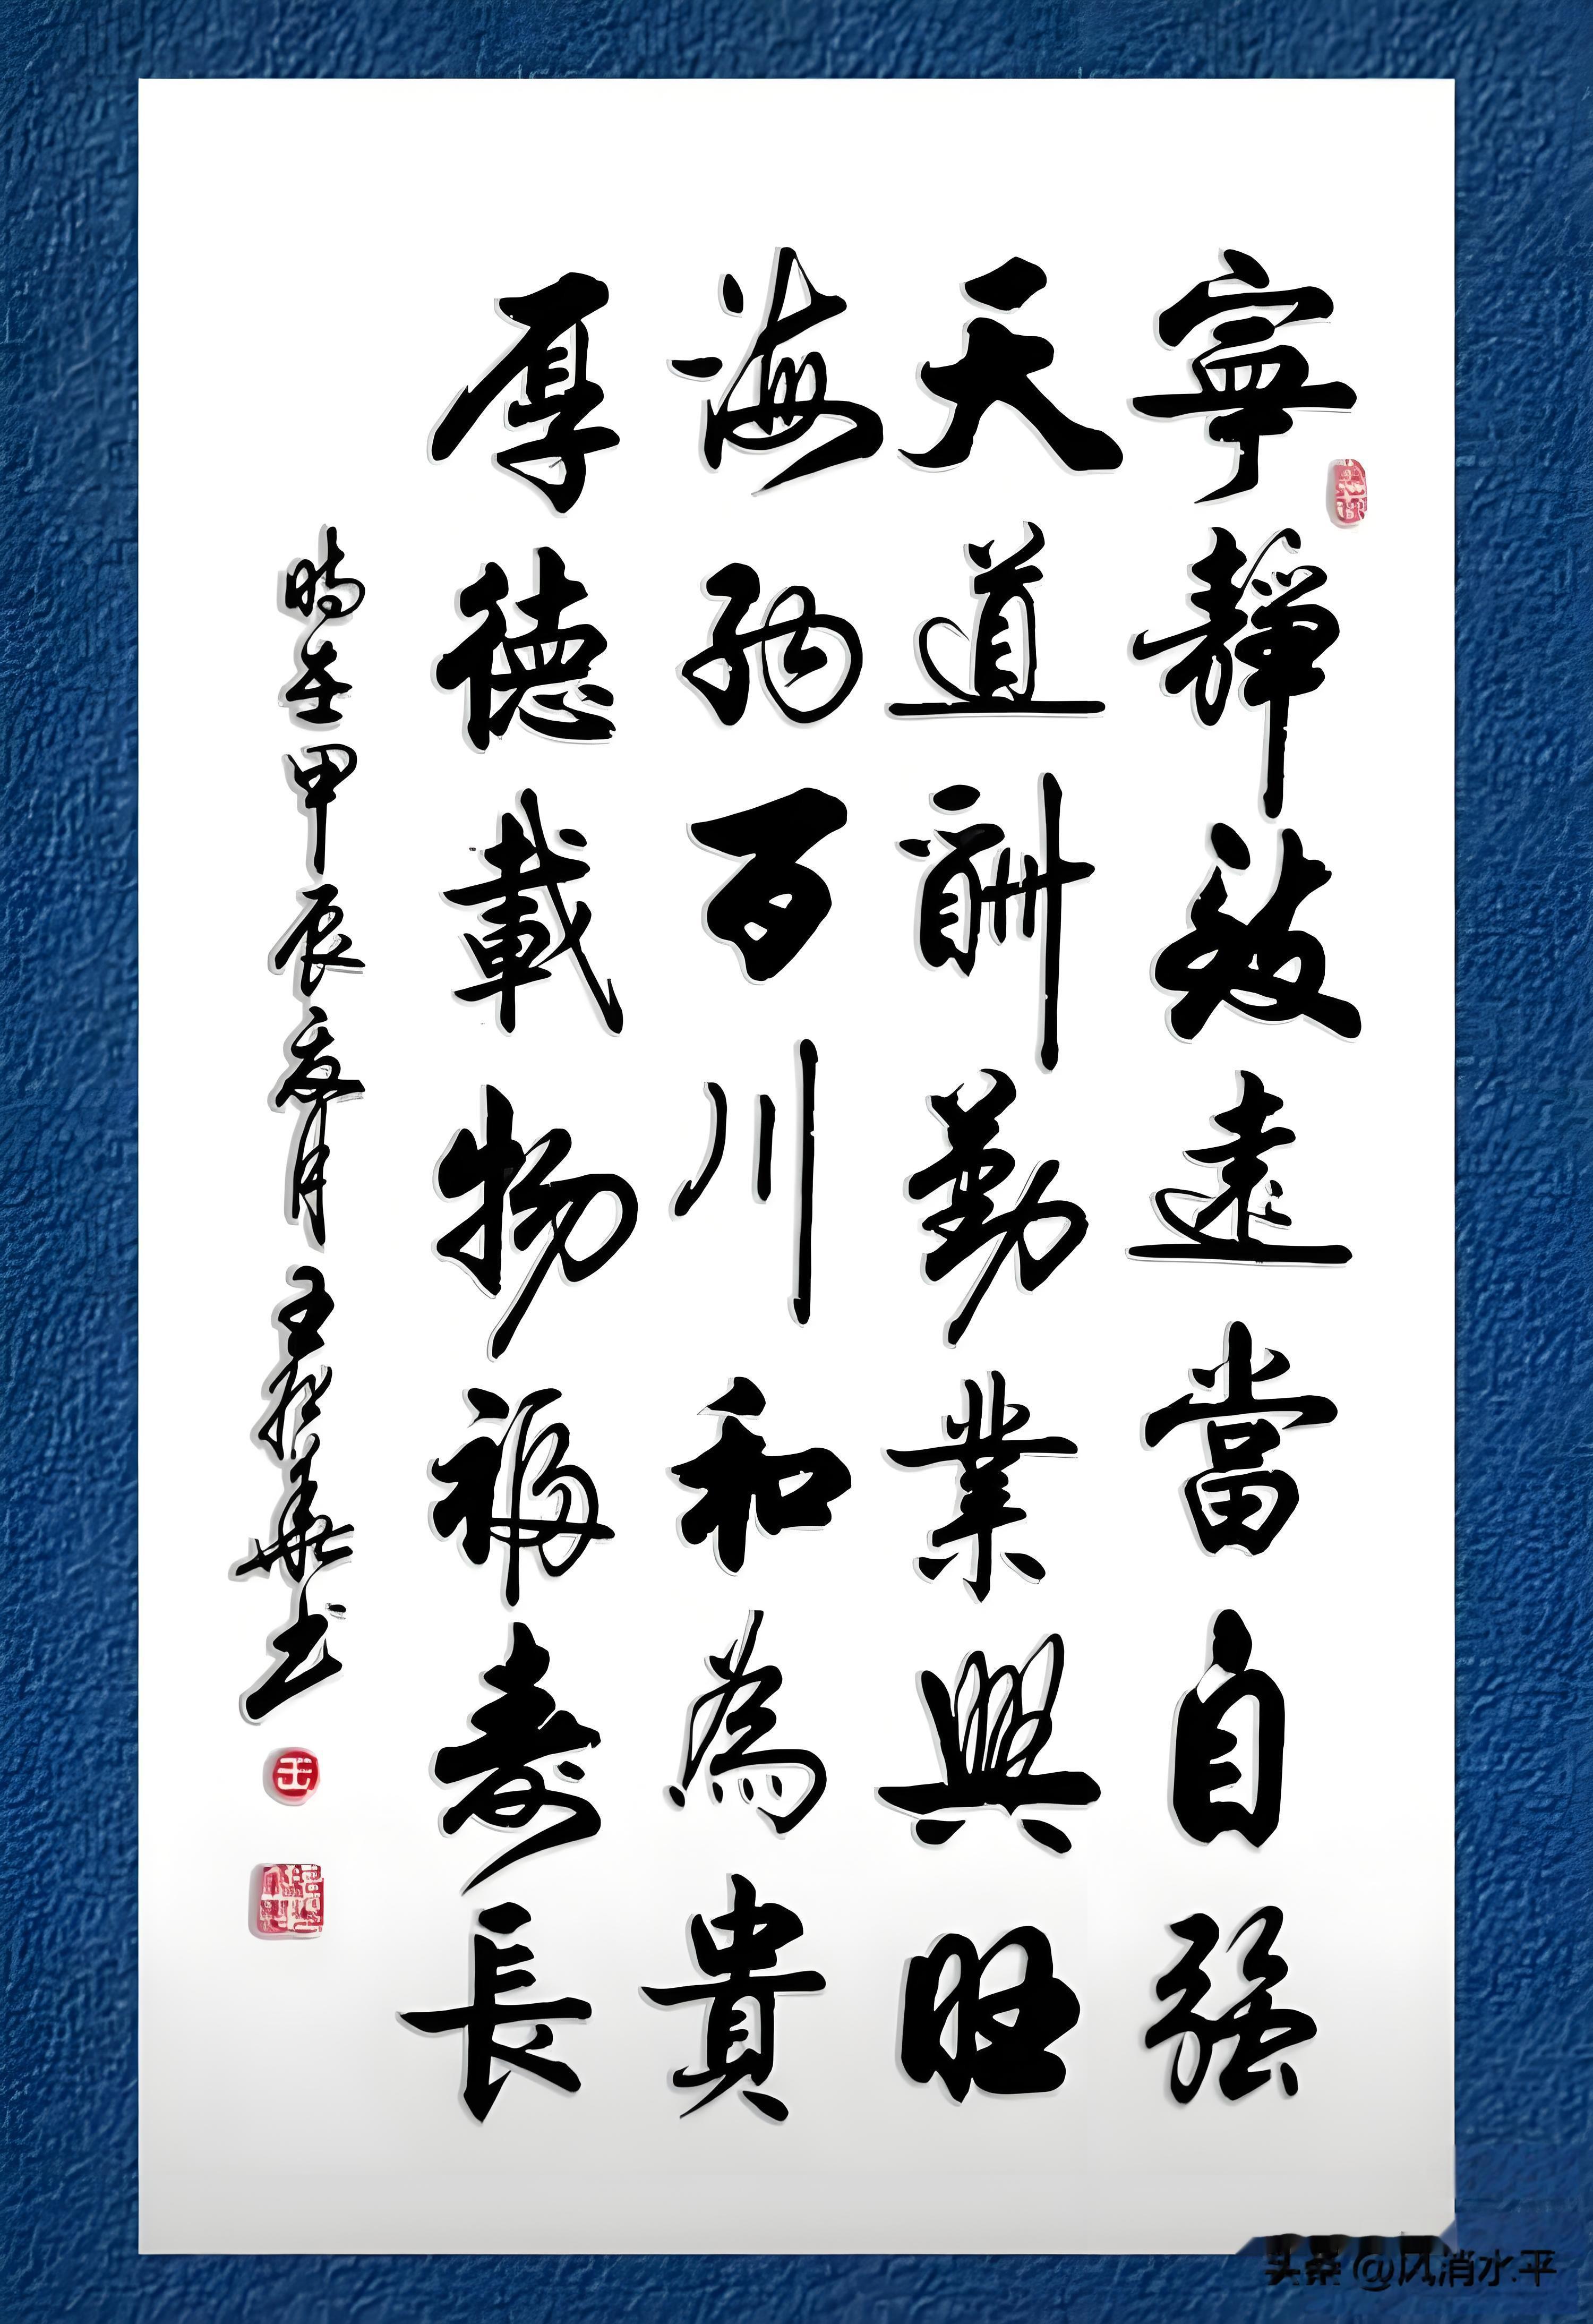 寧静致遠當自强
天道酬勤業興旺
海納百川和為貴
厚德載物福壽長
時在甲辰夏月王
書
王
头条 @风消水平